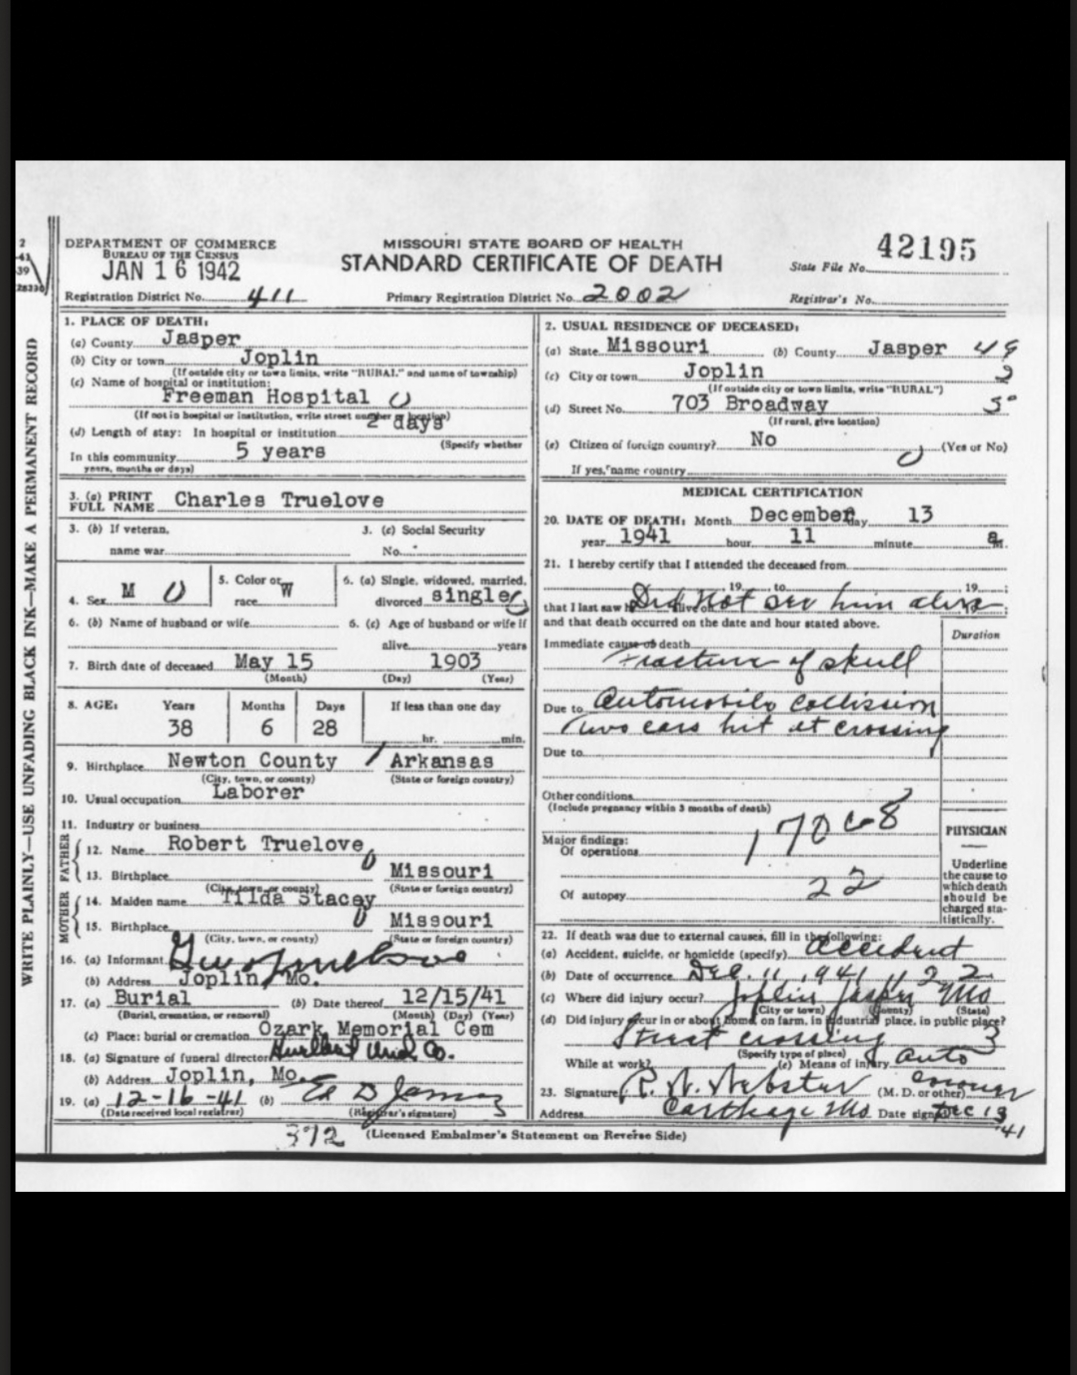 DEPARTMENT OF COMMERCE
BUREAU OF THE CENSUS
JAN 16 1942
MISSOURI STATE BOARD OF HEALTH
STANDARD CERTIFICATE OF DEATH
42195
State File No.
Registration District No. 411
Primary Registration District No. 2002
Registrar's No.
WRITE PLAINLY—USE UNFADING BLACK INK—MAKE A PERMANENT RECORD
1. PLACE OF DEATH:
(a) County Jasper
(b) City or town Joplin
(If outside city or town limits, write "RURAL" and name of township)
(c) Name of hospital or institution:
Freeman Hospital
(If not in hospital or institution, write street number or location)
(d) Length of stay: In hospital or institution 2 days
(Specify whether
In this community 5 years
years, months or days)
3. (a) PRINT FULL NAME Charles Truelove
3. (b) If veteran, name war
3. (c) Social Security No.
4. Sex M
5. Color or race W
6. (a) Single, widowed, married, divorced single
6. (b) Name of husband or wife
6. (c) Age of husband or wife if alive years
7. Birth date of deceased May 15 1903
(Month) (Day) (Year)
8. AGE: Years Months Days If less than one day
38 6 28 hr. min.
9. Birthplace Newton County Arkansas
(City, town, or county) (State or foreign country)
10. Usual occupation Laborer
11. Industry or business
FATHER
12. Name Robert Truelove
13. Birthplace Missouri
(City, town, or county) (State or foreign country)
MOTHER
14. Maiden name Tilda Stacey
15. Birthplace Missouri
(City, town, or county) (State or foreign country)
16. (a) Informant
(b) Address Joplin, Mo.
17. (a) Burial (b) Date thereof 12/15/41
(Burial, cremation, or removal) (Month) (Day) (Year)
(c) Place: burial or cremation Ozark Memorial Cem
18. (a) Signature of funeral director Hurlbut Und Co.
(b) Address Joplin, Mo.
19. (a) 12-16-41 (b) Ed D James
(Date received local registrar) (Registrar's signature)
2. USUAL RESIDENCE OF DECEASED:
(a) State Missouri (b) County Jasper 49
(c) City or town Joplin
(If outside city or town limits, write "RURAL")
(d) Street No. 703 Broadway
(If rural, give location)
(e) Citizen of foreign country? No (Yes or No)
If yes, name country
MEDICAL CERTIFICATION
20. DATE OF DEATH: Month December day 13
year 1941 hour 11 minute a M.
21. I hereby certify that I attended the deceased from
19 to 19 ;
that I last saw h alive on Did not see him alive ;
and that death occurred on the date and hour stated above.
Duration
Immediate cause of death
Fracture of skull
Due to Automobile collision
Two cars hit at crossing
Due to
Other conditions
(Include pregnancy within 3 months of death)
170c-8
Major findings:
Of operations
Of autopsy
22
PHYSICIAN
Underline the cause to which death should be charged statistically.
22. If death was due to external causes, fill in the following:
(a) Accident, suicide, or homicide (specify) accident
(b) Date of occurrence Dec. 11, 1941
(c) Where did injury occur? Joplin Jasper Mo
(City or town) (County) (State)
(d) Did injury occur in or about home, on farm, in industrial place, in public place?
Street crossing
(Specify type of place)
While at work? (e) Means of injury auto
23. Signature R. W. Webster (M. D. or other) coroner
Address Carthage Mo Date signed Dec 13 '41
372
(Licensed Embalmer's Statement on Reverse Side)